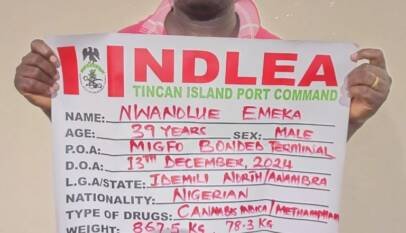 NDLEA
TINCAN ISLAND PORT COMMAND
NAME: NWANOLUE EMEKA
AGE: 39 YEARS SEX: MALE
P.O.A: MIGFO BONDED TERMINAL
D.O.A: 13TH DECEMBER, 2024
L.G.A/STATE: IDEMILI NORTH/ANAMBRA
NATIONALITY: NIGERIAN
TYPE OF DRUGS: CANNABIS INDICA/METHAMPHAM
WEIGHT: 867.5 KG, 78.3 KG